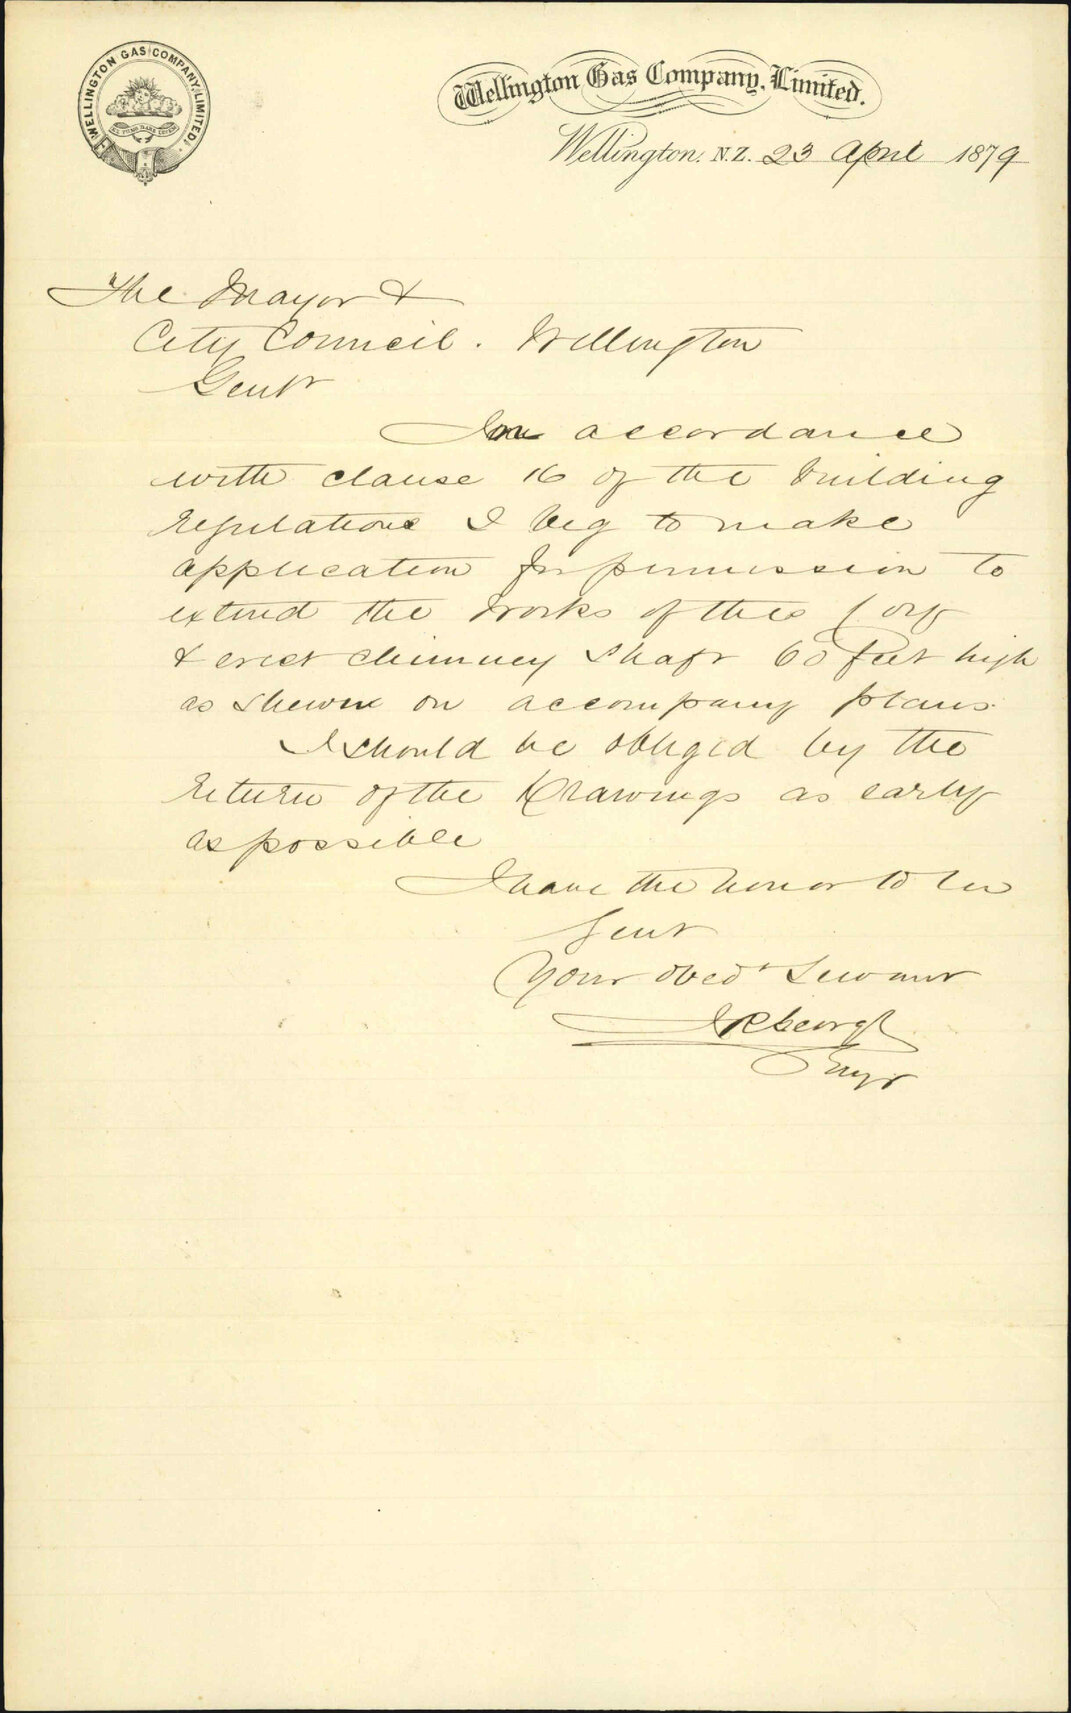 WELLINGTON GAS COMPANY, LIMITED.
EX FUMO DARE LUCEM
Wellington Gas Company, Limited.
Wellington, N.Z. 23 April 1879
The Mayor &
City Council. Wellington
Gent
In accordance
with clause 16 of the building
regulations I beg to make
application for permission to
extend the works of this Coy
& erect chimney shaft 60 feet high
as shewn on accompany plans.
I should be obliged by the
return of the Drawings as early
as possible
I have the honor to be
Gent
Your obedt Servant
J R George
Engr